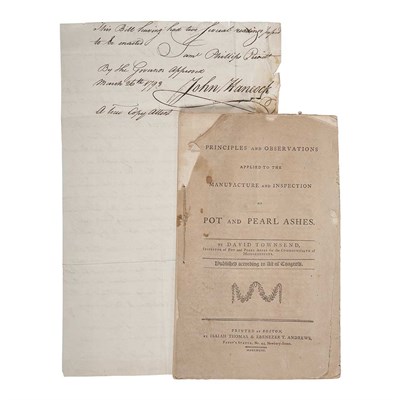 This Bill having had two several readings passed
to be enacted
Sam Phillips Presid
By the Governor Approved
March 26th 1793 John Hancock
A true Copy Attest
PRINCIPLES AND OBSERVATIONS
APPLIED TO THE
MANUFACTURE AND INSPECTION
OF
POT AND PEARL ASHES.
BY DAVID TOWNSEND,
INSPECTOR OF POT AND PEARL ASHES FOR THE COMMONWEALTH OF
MASSACHUSETTS.
Published according to Act of Congress.
PRINTED AT BOSTON,
BY ISAIAH THOMAS & EBENEZER T. ANDREWS,
FAUST'S STATUE, No. 45, NEWBURY STREET.